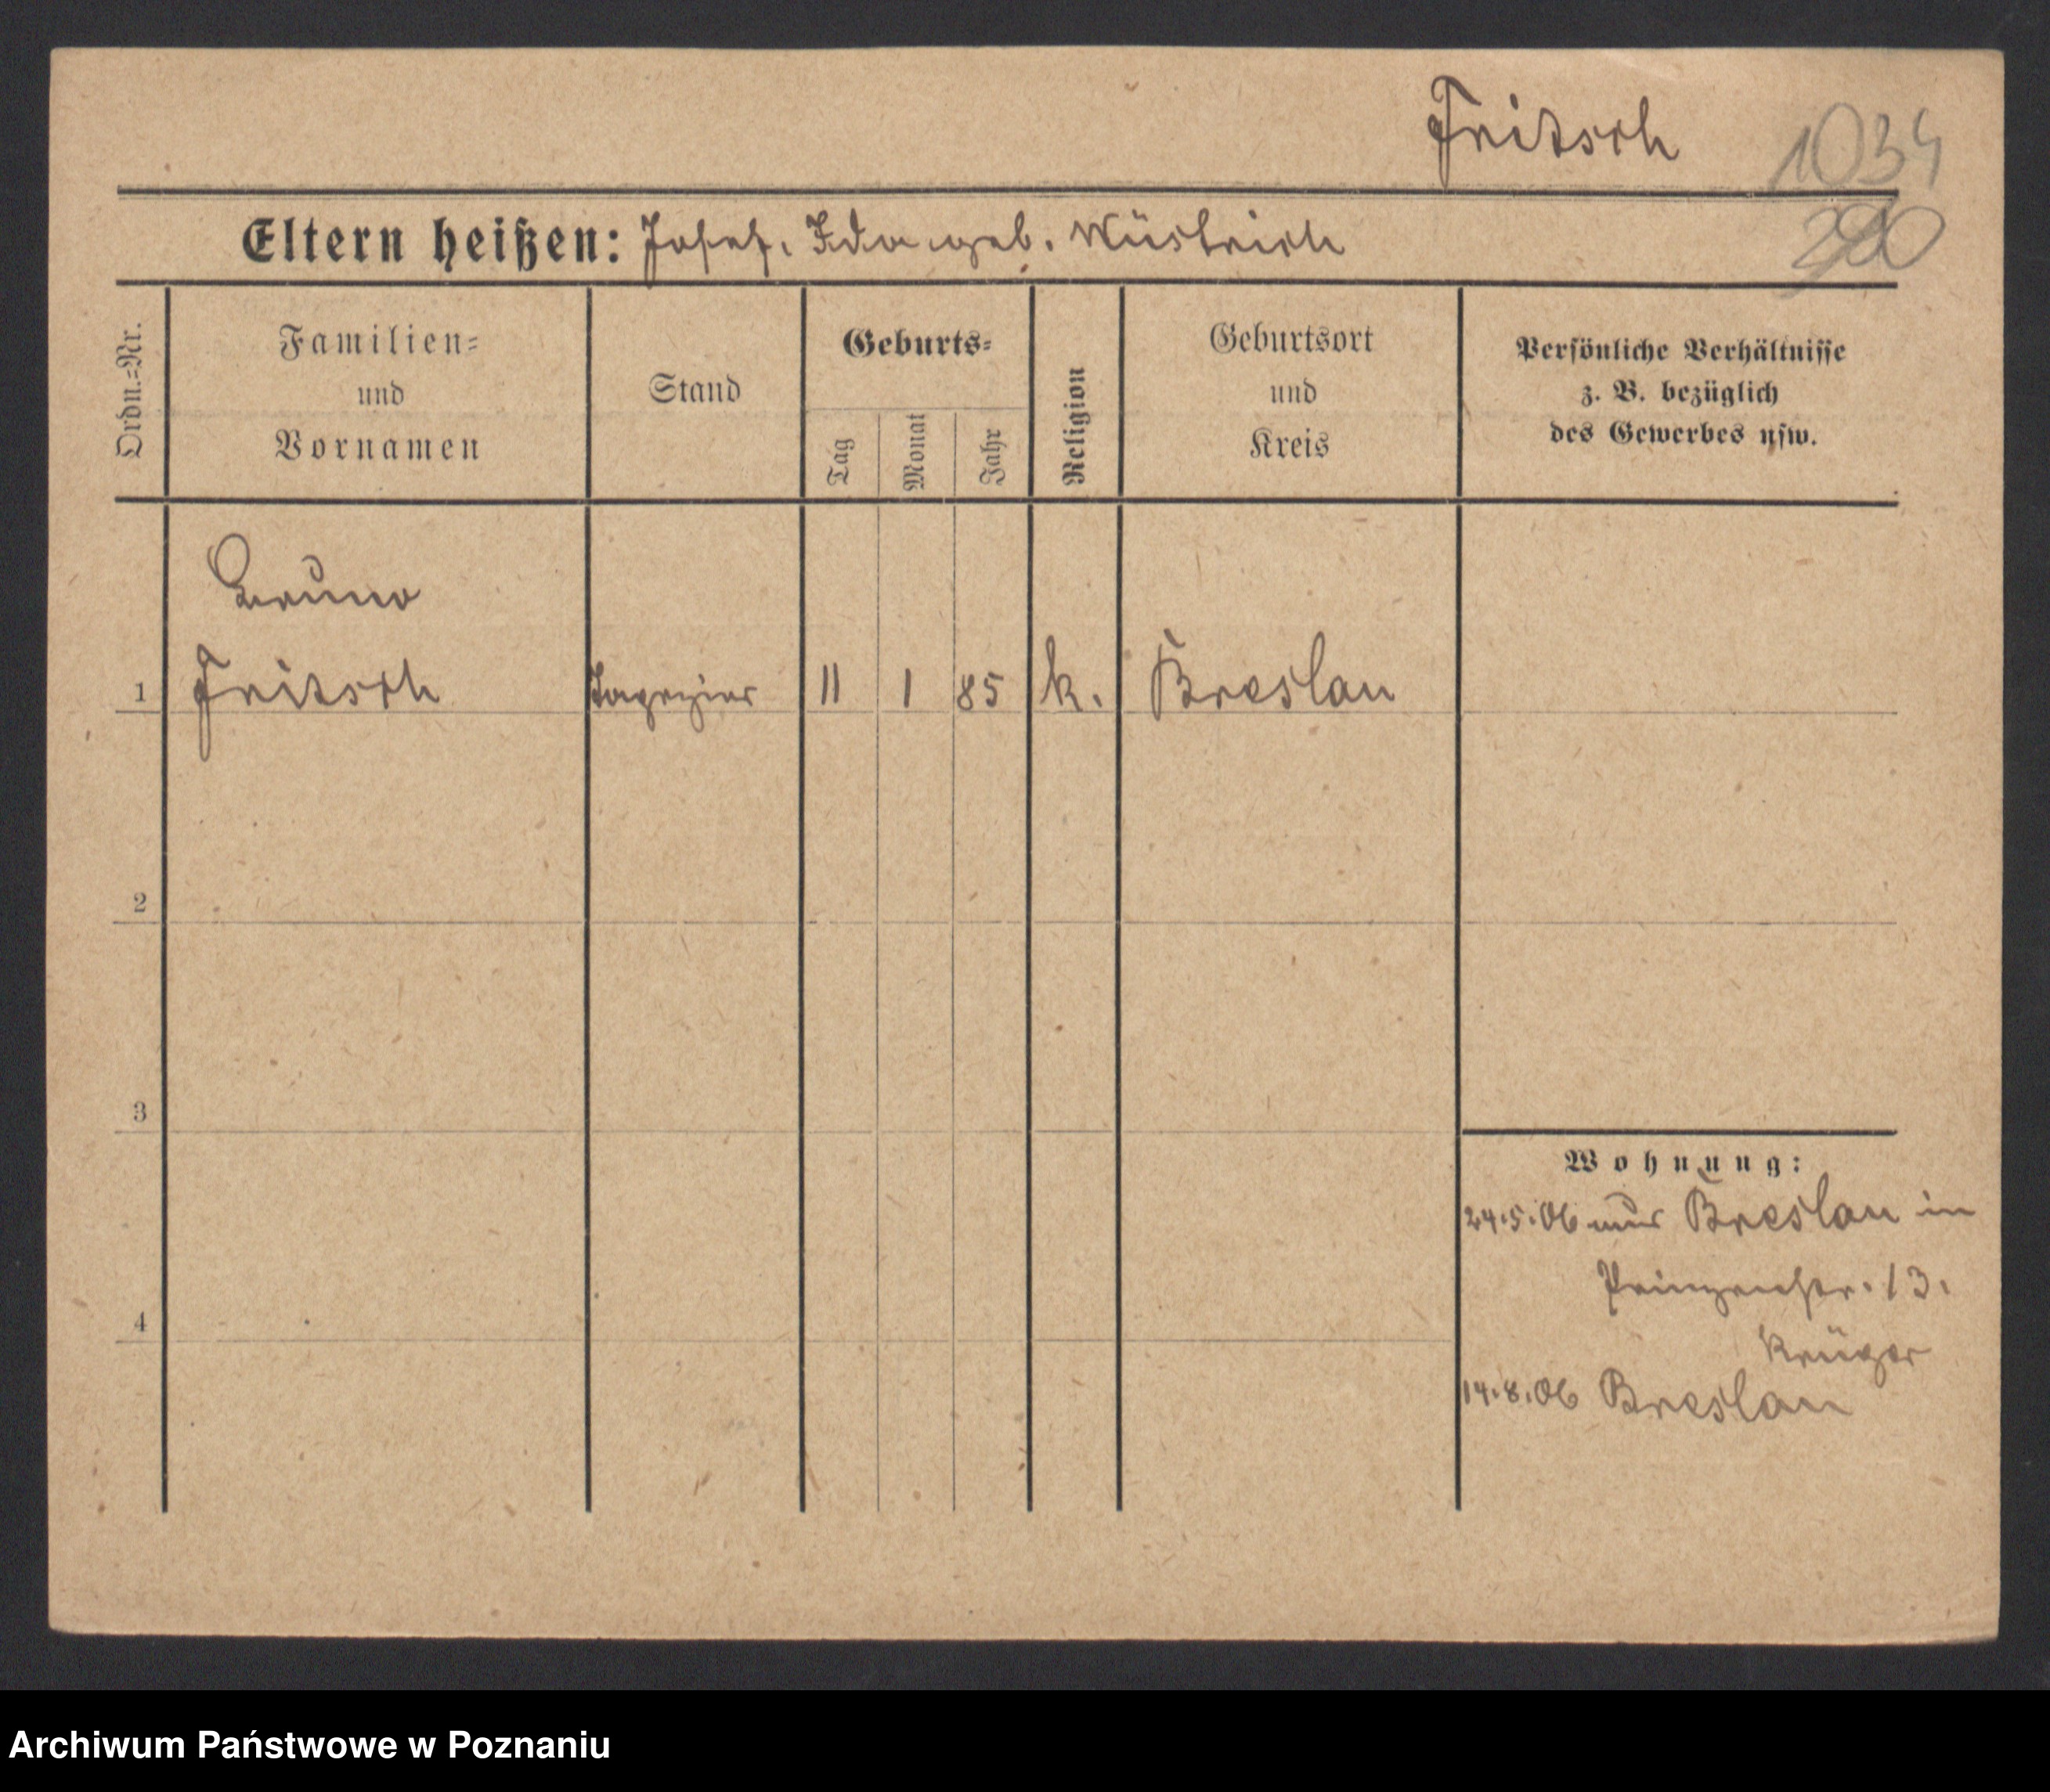 Fritsch
1034
Eltern heißen: Josef, Ida geb. Wüstrich
Ordn.=Nr.
Familien=
und
Vornamen
Stand
Geburts=
Tag
Monat
Jahr
Religion
Geburtsort
und
Kreis
Persönliche Verhältnisse
z. B. bezüglich
des Gewerbes usw.
Bruno
1 Fritsch Tapezier 11 1 85 k. Breslau
2
3
4
Wohnung:
24.5.06 aus Breslau in
Prinzenstr. 13.
Krüger
14.8.06 Breslau
Archiwum Państwowe w Poznaniu